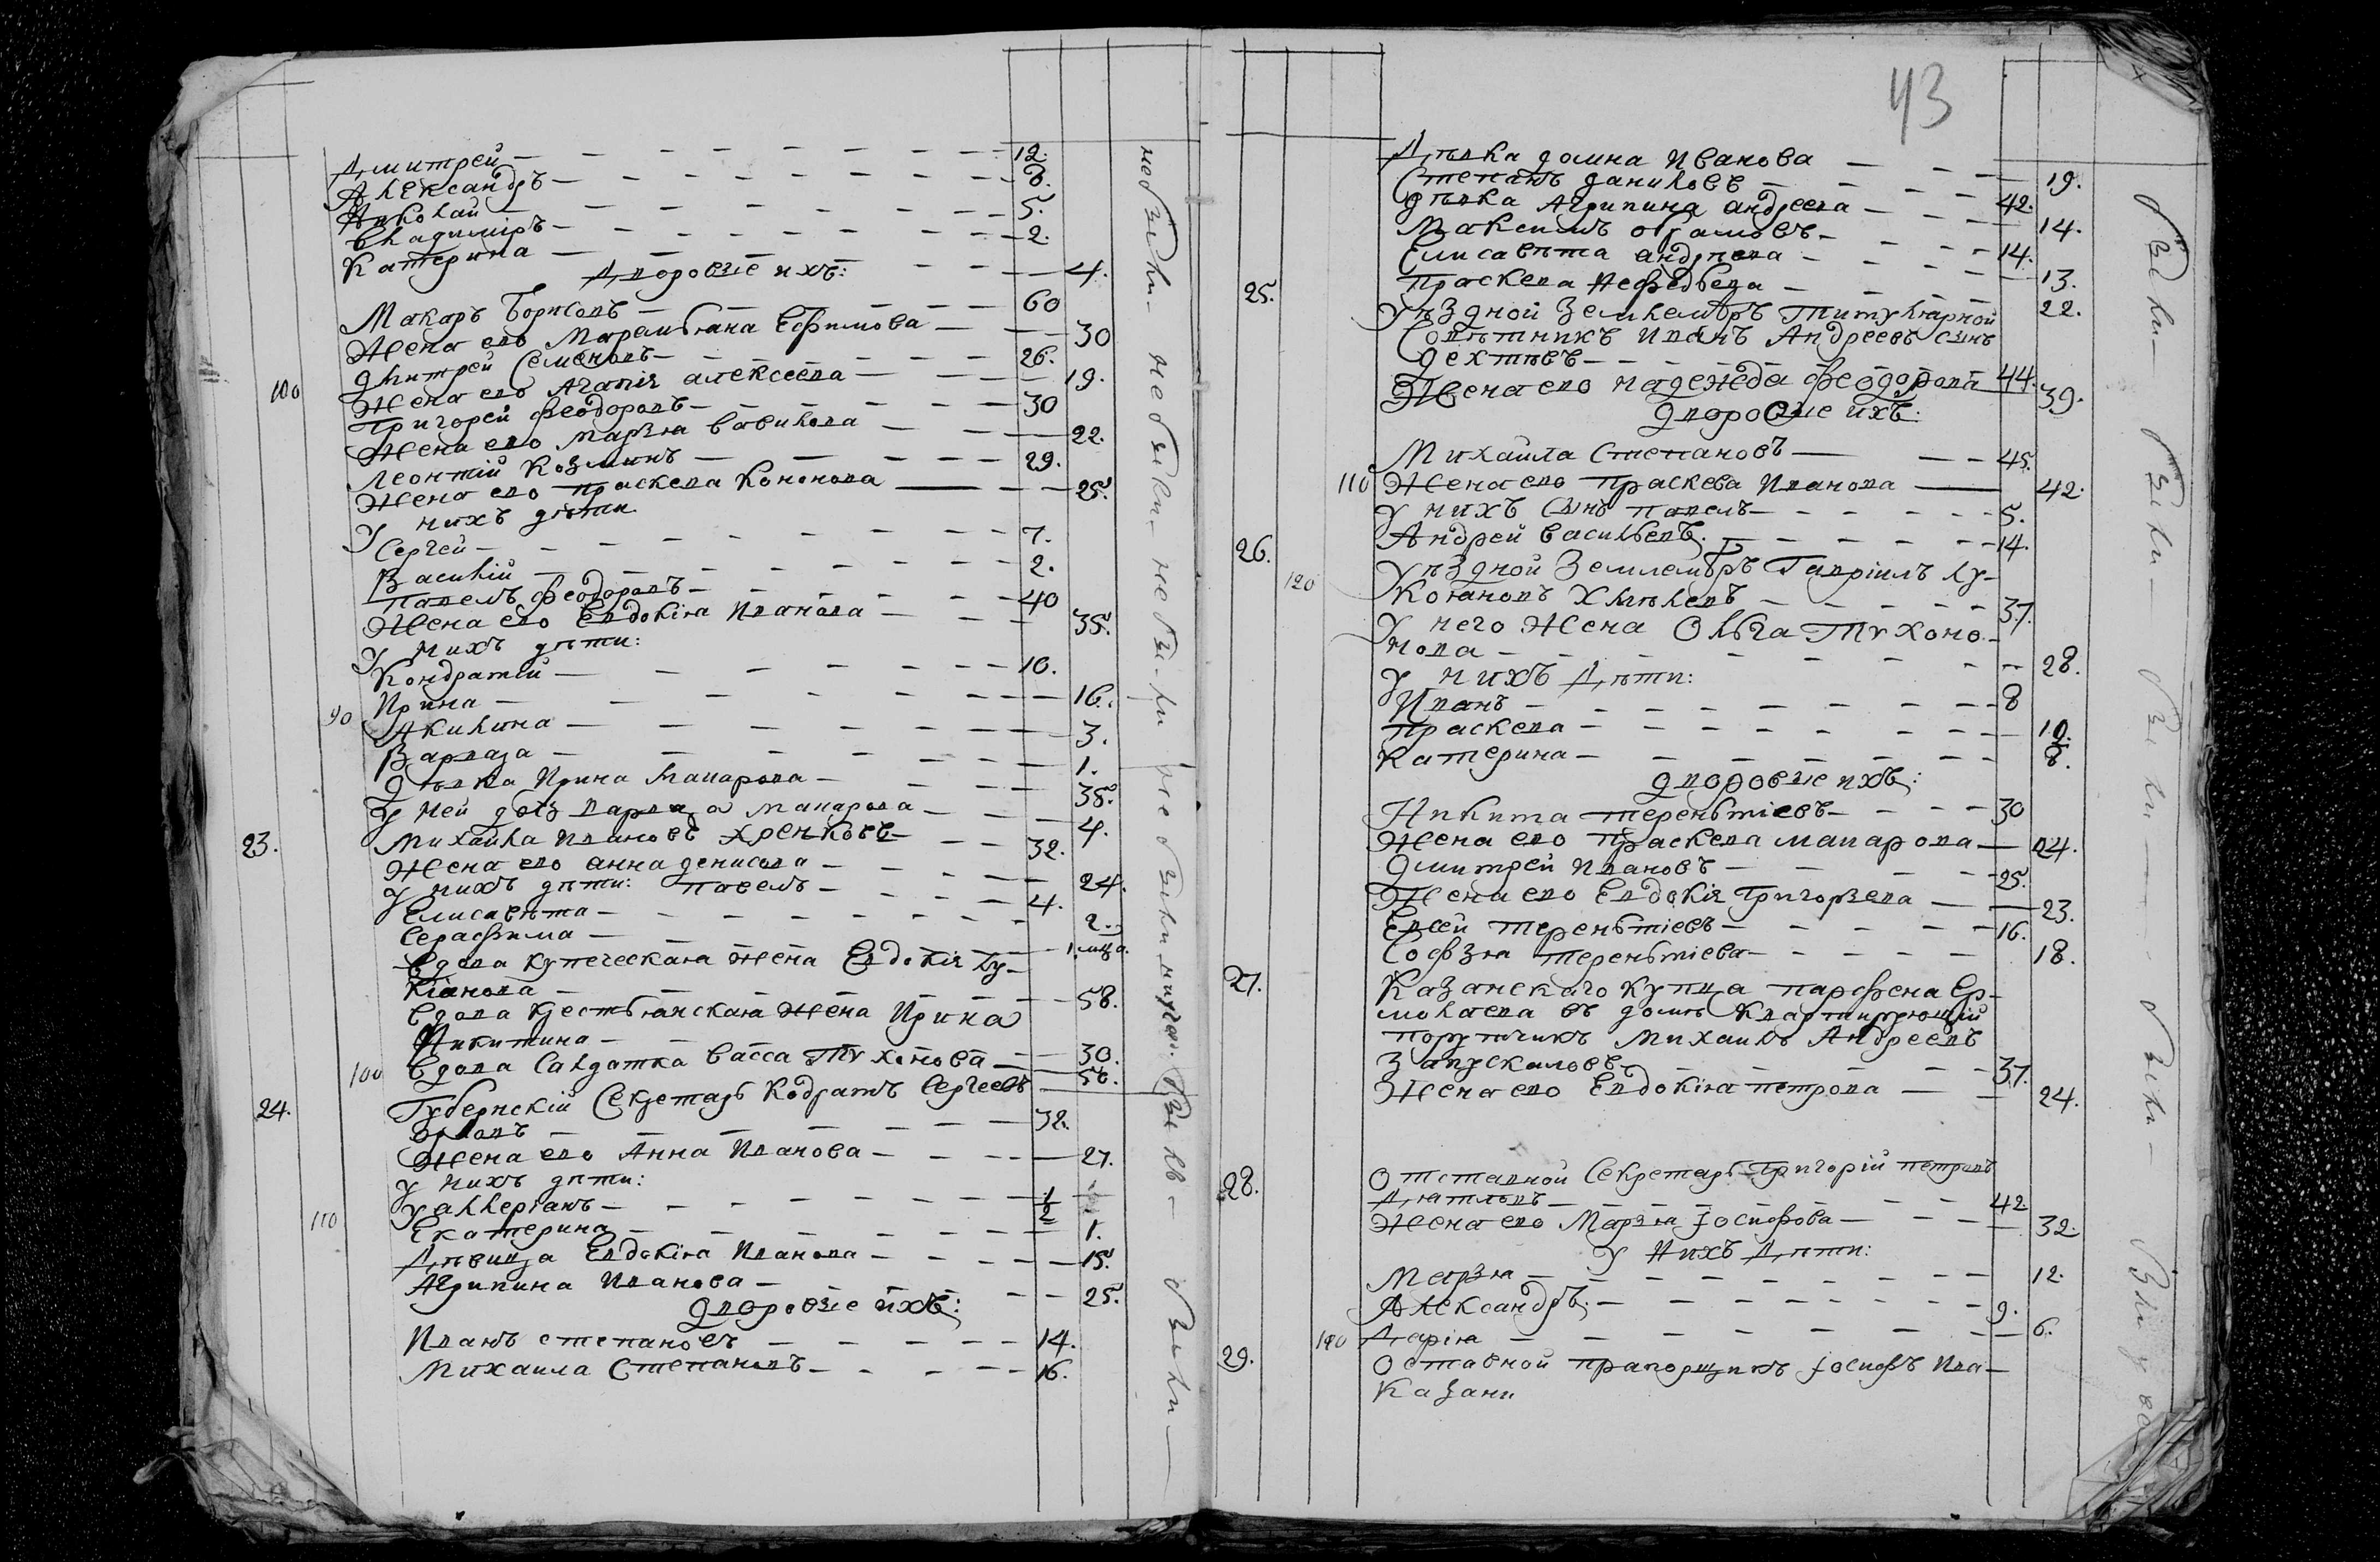 Дмитрей — 12.
Александръ — 8.
Николай — 5.
Владиміръ — 2.
Катерина — 4.
Дворовые ихъ:
Макаръ Борисовъ — 60
Жена ево Маремьяна Ефимова — 30
Дмитрей Семеновъ — 26.
100 Жена ево Агапія алексеева — 19.
Григорей Феодоровъ — 30
Жена ево Марья Вавилова — 22.
Леонтій Козминъ — 29.
Жена ево Праскева Кононова — 25.
У нихъ дѣти
Сергей — 7.
Василій — 2.
Павелъ Феодоровъ — 40
Жена ево Евдокія Иванова — 35.
У нихъ дѣти:
Кондратей — 10.
Ирина — 16.
90 Акилина — 3.
Варвара — 1.
Дѣвка Ирина Макарова — 38.
У ней дочь Варвара Макарова — 4.
23. Михайла Ивановъ Хренковъ — 32.
Жена ево анна денисова — 24.
У нихъ дѣти: Павелъ — 4.
Елисавѣта — 2.
Серафима — 1. мца.
Вдова купеческая жена Евдокія Лу-
кіанова — 58.
Вдова крестьянская жена Ирина
Никитина — 30.
100 Вдова Салдатка Васса Тихонова — 50.
24. Губернскій Секретарь Кодратъ Сергеевъ
Орловъ — 32.
Жена ево Анна Иванова — 27.
У нихъ дѣти:
Уаллеріанъ — 1/2
110 Екатерина — 1.
Дѣвица Евдокія Иванова — 15.
Агрипина Иванова — 25.
Дворовые ихъ:
Иванъ степановъ — 14.
Михаила Степановъ — 16.
небыли небыли небыли небыли небыли были были
43
Дѣвка домна Иванова — 19.
Степанъ даниловъ — 42.
дѣвка Агрипина андреева — 14.
Максимъ — 14.
Елисавѣта андрѣева — 13.
Праскева Нефедьева — 22.
25. Уѣздной Землемѣръ Титулярной
Совѣтникъ Иванъ Андреевъ сынъ
Дехтевъ — 44.
Жена ево надежда феодорова — 39.
Дворовые ихъ:
Михайла Степановъ — 45.
110 Жена ево Праскева Иванова — 42.
У нихъ сынъ Павелъ — 5.
Андрей Васильевъ. — 14.
26. Уѣздной Землемѣръ Гавріилъ Лу-
120 кояновъ Хмѣлевъ — 37.
У него жена Ольга Тихоно-
нова — 28.
У нихъ Дѣти:
Иванъ — 8
Праскева — 10.
Катерина — 8.
дворовые ихъ:
Никита терентьіевъ — 30
Жена ево Праскева макарова — 24.
Дмитрей Ивановъ — 25.
Жена ево Евдокія Григорьева — 23.
Евсей терентьіевъ — 16.
Софья терентьіева — 18.
27. Казанскаго купца парфена Ер-
молаева въ домѣ Квартирующій
порутчикъ Михаилъ Андреевъ
Запускаловъ — 37.
Жена ево Евдокія петрова — 24.
28. Отставной Секретарь Григорій петровъ
Дятловъ — 42
Жена ево Марья Іосифова — 32.
У Нихъ Дѣти:
Марья — 12.
Александръ. — 9.
140 Дарія — 6.
29. Оставной прапорщикъ Іосифъ Ива-
Казани
были были были были были